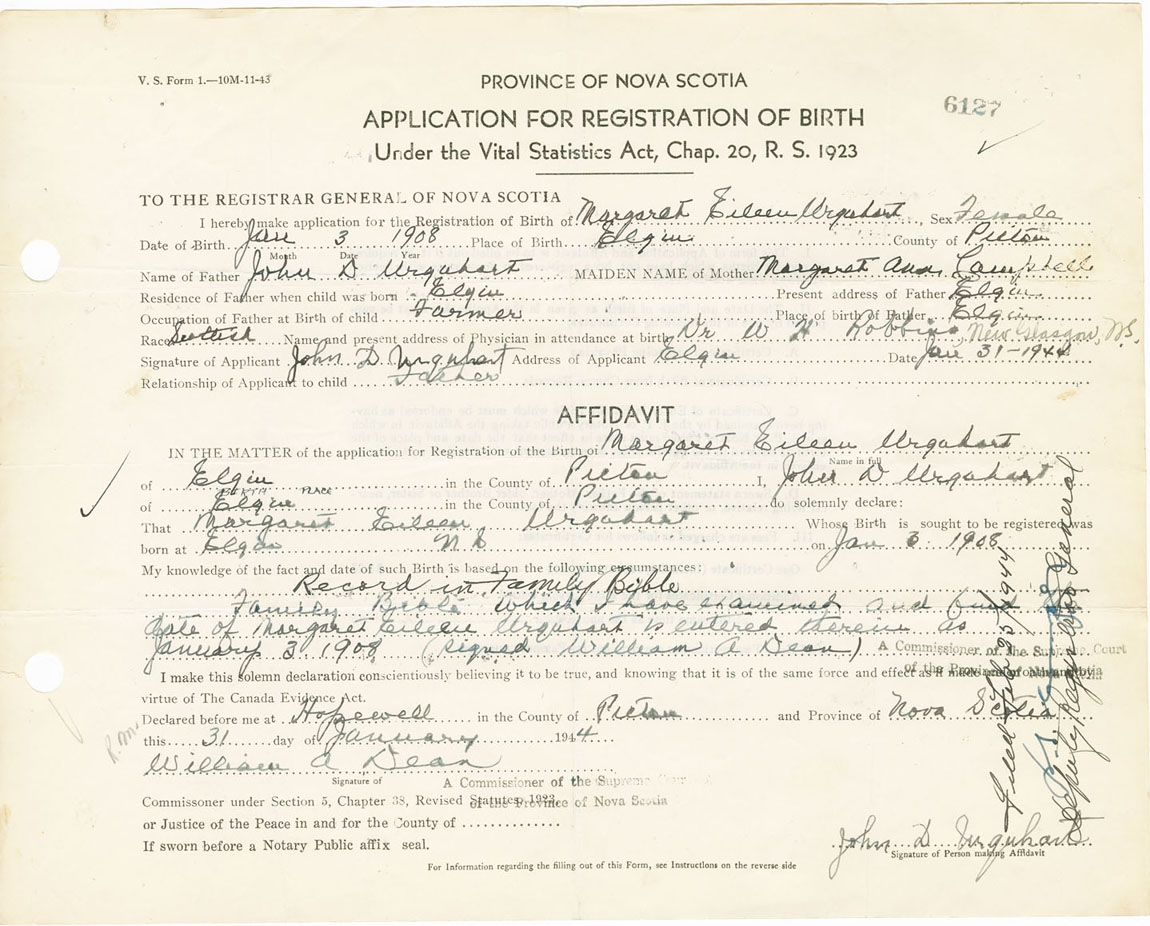 V. S. Form 1.—10M-11-43
PROVINCE OF NOVA SCOTIA
6127
APPLICATION FOR REGISTRATION OF BIRTH
Under the Vital Statistics Act, Chap. 20, R. S. 1923
TO THE REGISTRAR GENERAL OF NOVA SCOTIA
I hereby make application for the Registration of Birth of Margaret Eileen Urquhart, Sex Female
Date of Birth Jan 3 1908 Place of Birth Elgin County of Pictou
Month Date Year
Name of Father John D Urquhart MAIDEN NAME of Mother Margaret Ann Campbell
Residence of Father when child was born Elgin Present address of Father Elgin
Occupation of Father at Birth of child Farmer Place of birth of Father Elgin
Race Scottish Name and present address of Physician in attendance at birth Dr W H Robbins, New Glasgow, N.S.
Signature of Applicant John D Urquhart Address of Applicant Elgin Date Jan 31-1944
Relationship of Applicant to child Father
AFFIDAVIT
IN THE MATTER of the application for Registration of the Birth of Margaret Eileen Urquhart
Name in full
of Elgin in the County of Pictou I, John D Urquhart
BIRTH PLACE
of Elgin in the County of Pictou do solemnly declare:
That Margaret Eileen Urquhart Whose Birth is sought to be registered was
born at Elgin N S on Jan 3 1908
My knowledge of the fact and date of such Birth is based on the following circumstances:
Record in Family Bible
Family Bible which I have examined and find
date of Margaret Eileen Urquhart is entered therein as
January 3 1908 (Signed William A Dean) A Commissioner of the Supreme Court
of the Province of Nova Scotia
I make this solemn declaration conscientiously believing it to be true, and knowing that it is of the same force and effect as if made under oath and by
virtue of The Canada Evidence Act.
Declared before me at Hopewell in the County of Pictou and Province of Nova Scotia
this 31 day of January 1944
P.M.
William A Dean
Signature of A Commissioner of the Supreme Court
of the Province of Nova Scotia
Commissoner under Section 5, Chapter 38, Revised Statutes, 1923
or Justice of the Peace in and for the County of
If sworn before a Notary Public affix seal.
John D Urquhart
Signature of Person making Affidavit
For Information regarding the filling out of this Form, see Instructions on the reverse side
Filed Feb 25/1944
Deputy Registrar General